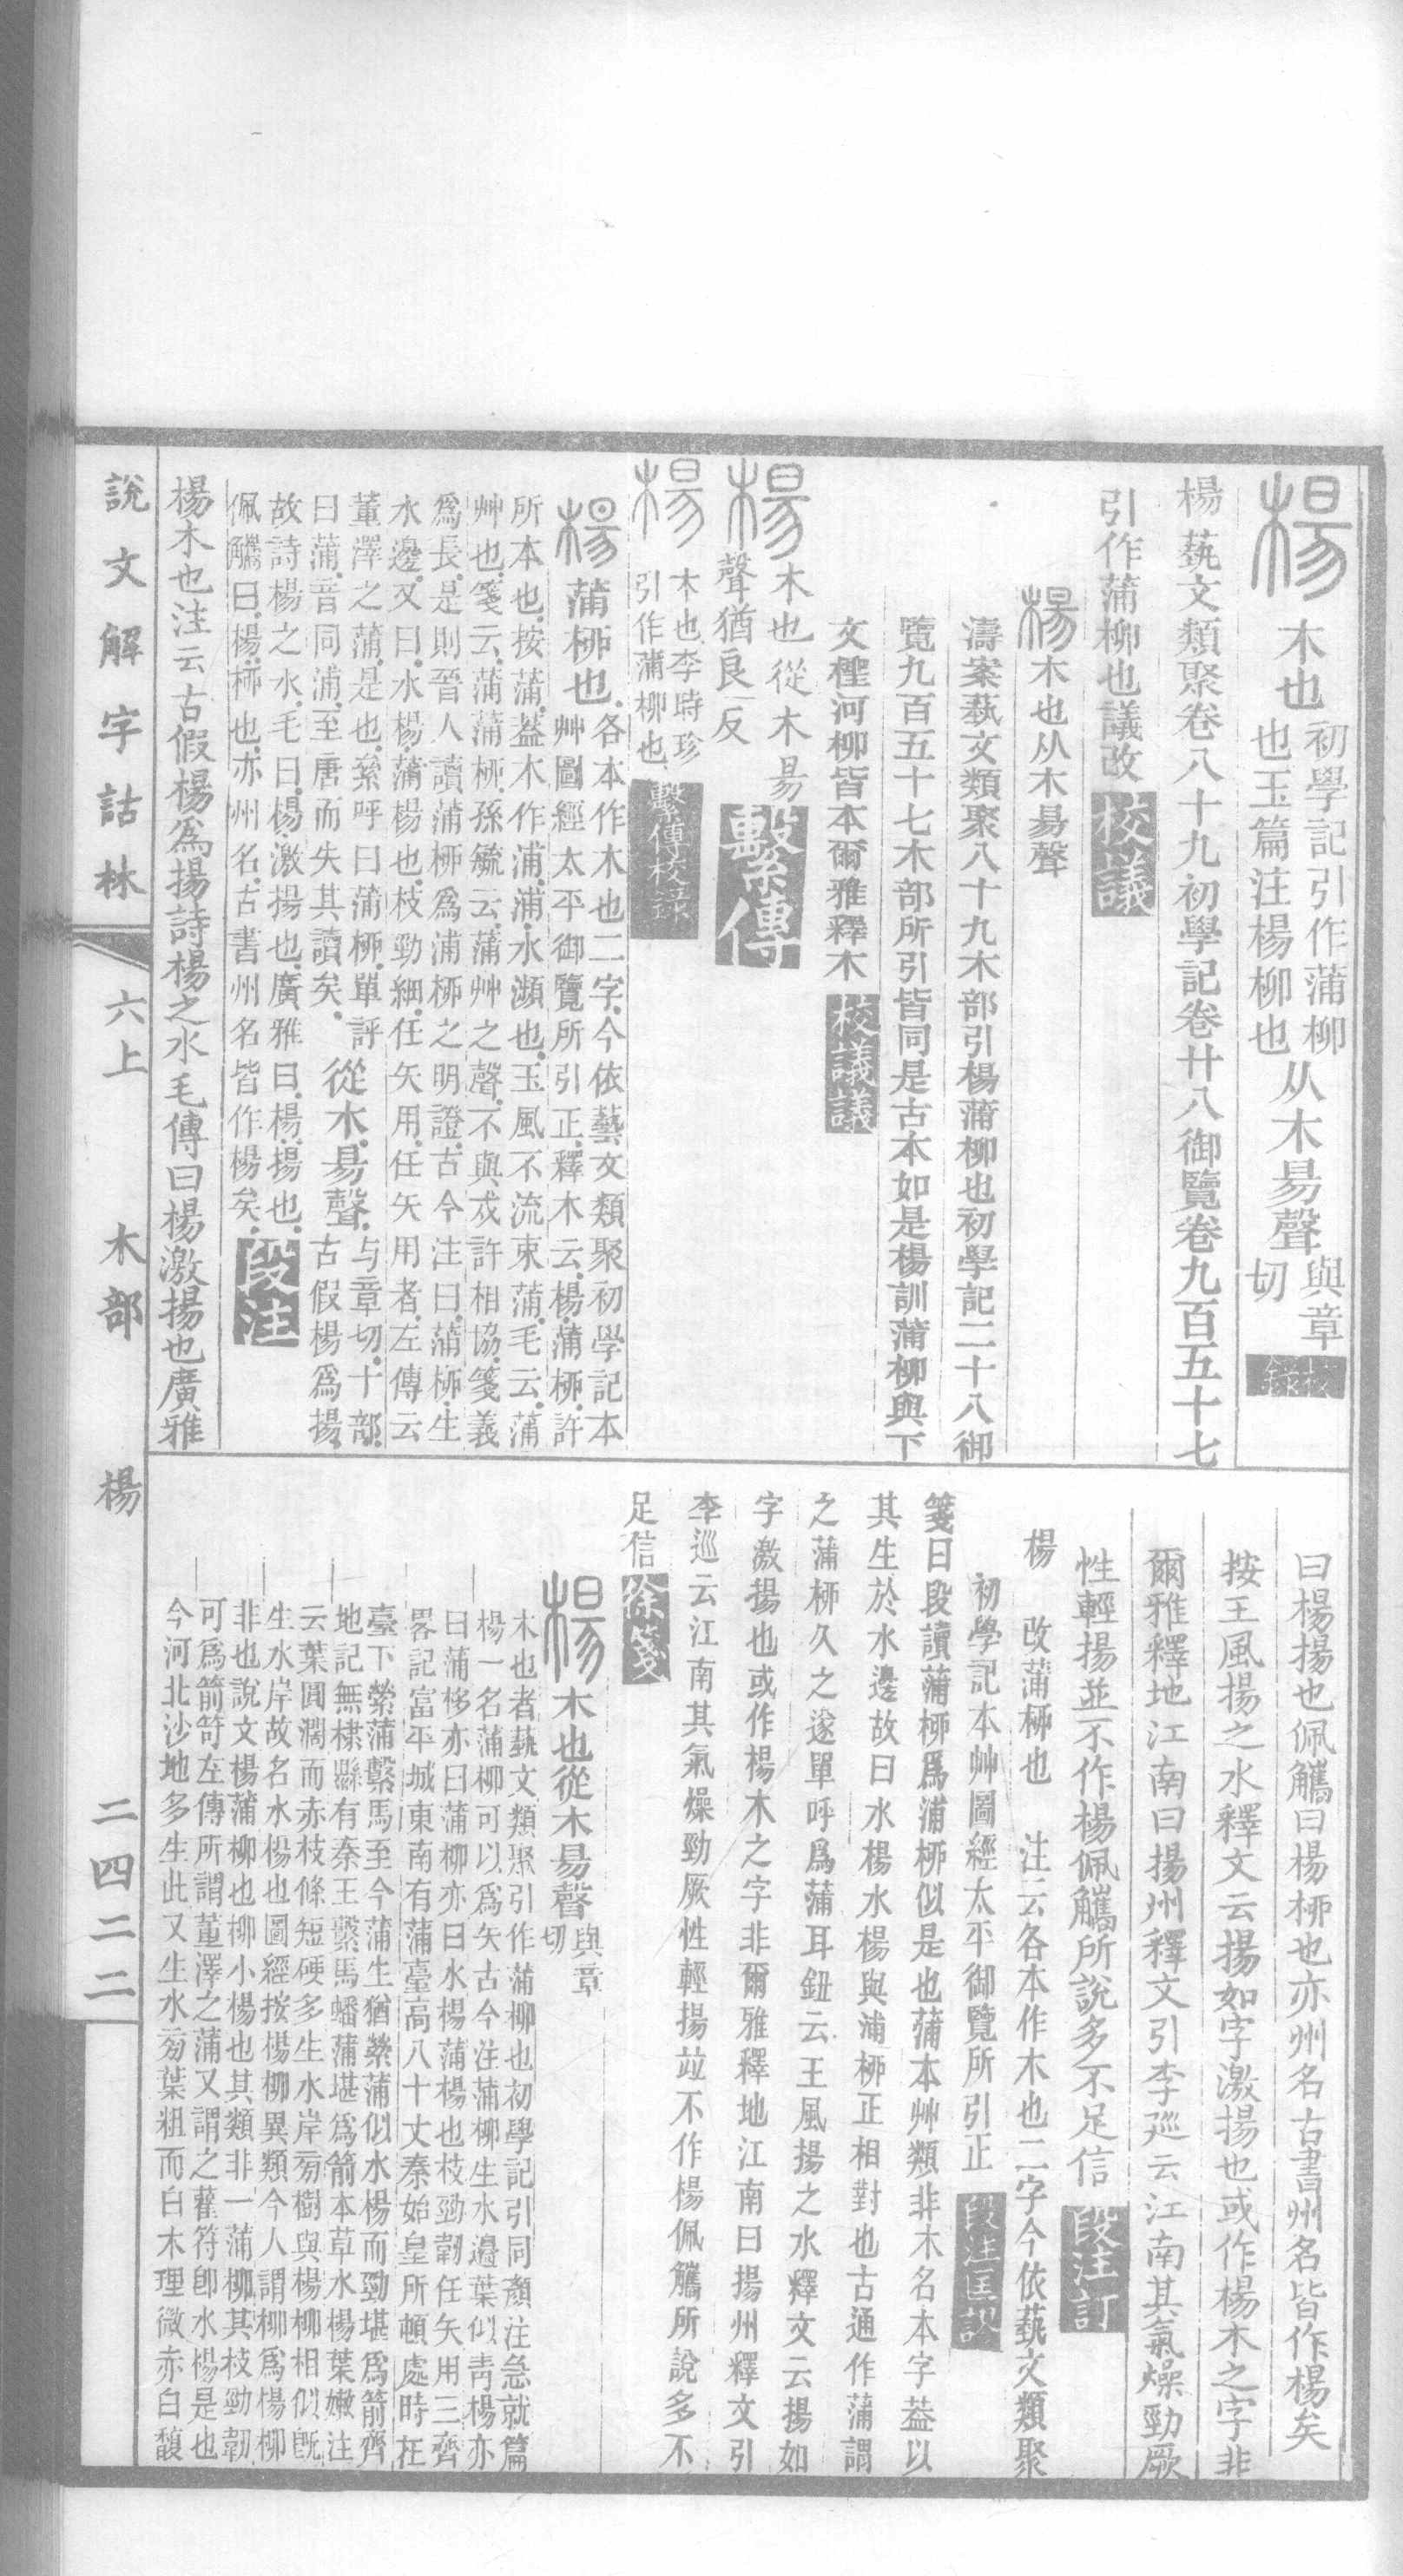 楊木也初學記引作蒲柳也玉篇注楊柳也从木昜聲與章切校錄
楊藝文類聚卷八十九初學記卷廿八御覽卷九百五十七
引作蒲柳也議改校議
楊木也从木昜聲
濤案蓺文類聚八十九木部引楊蒲柳也初學記二十八御
覽九百五十七木部所引皆同是古本如是楊訓蒲柳與下
文檉河柳皆本爾雅釋木校議議
楊木也從木昜
聲猶良反繫傳
楊木也李時珍
引作蒲柳也繫傳校錄
楊蒲桺也各本作木也二字今依藝文類聚初學記本
艸圖經太平御覽所引正釋木云楊蒲桺許
所本也按蒲葢木作浦浦水瀕也王風不流束蒲毛云蒲
艸也箋云蒲蒲桺孫毓云蒲艸之聲不與戍許相協箋義
爲長是則晉人讀蒲桺爲浦桺之明證古今注曰蒲桺生
水邊又曰水楊蒲楊也枝勁細任矢用任矢用者左傳云
董澤之蒲是也絫呼曰蒲桺單評
曰蒲音同浦至唐而失其讀矣從木昜聲与章切十部
古假楊爲揚
故詩楊之水毛曰楊激揚也廣雅曰楊揚也
佩觿曰楊桺也亦州名古書州名皆作楊矣段注
楊木也注云古假楊爲揚詩楊之水毛傳曰楊激揚也廣雅
曰楊揚也佩觿曰楊桺也亦州名古書州名皆作楊矣
按王風揚之水釋文云揚如字激揚也或作楊木之字非
爾雅釋地江南曰揚州釋文引李巡云江南其氣燥勁厥
性輕揚並不作楊佩觿所說多不足信段注訂
楊 改蒲桺也 注云各本作木也二字今依蓺文類聚
初學記本艸圖經太平御覽所引正段注匡謬
箋曰段讀蒲桺爲浦桺似是也蒲本艸類非木名本字葢以
其生於水邊故曰水楊水楊與浦桺正相對也古通作蒲謂
之蒲桺久之遂單呼爲蒲耳鈕云王風揚之水釋文云揚如
字激揚也或作楊木之字非爾雅釋地江南曰揚州釋文引
李巡云江南其氣燥勁厥性輕揚竝不作楊佩觿所說多不
足信徐箋
楊木也從木昜聲與章切
木也者蓺文類聚引作蒲柳也初學記引同顏注急就篇
楊一名蒲柳可以爲矢古今注蒲柳生水邊葉似青楊亦
曰蒲栘亦曰蒲柳亦曰水楊蒲楊也枝勁韌任矢用三齊
畧記富平城東南有蒲臺高八十丈秦始皇所頓處時在
臺下縈蒲繫馬至今蒲生猶縈蒲似水楊而勁堪爲箭齊
地記無棣縣有秦王繫馬蟠蒲堪爲箭本草水楊葉嫩注
云葉圓濶而赤枝條短硬多生水岸㫄樹與楊柳相似旣
生水岸故名水楊也圖經按楊柳異類今人謂柳爲楊柳
非也說文楊蒲柳也柳小楊也其類非一蒲柳其枝勁韌
可爲箭笴左傳所謂董澤之蒲又謂之雚符卽水楊是也
今河北沙地多生此又生水㫄葉粗而白木理微赤白馥
說文解字詁林 六上 木部 楊 二四二二